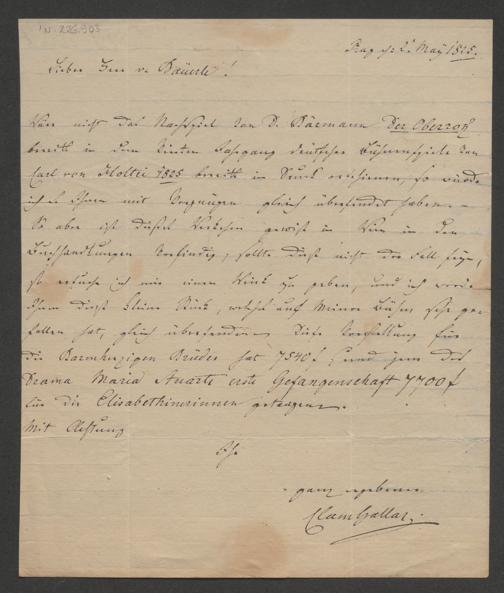 IN 226.905
Prag d. 2t May 1825.
Lieber Herr v. Bäuerle!
Wäre nicht das Nachspiel von D. Bärmann Der Oberrock
bereits in dem Jahrgang deutscher Bühnenspiele von
Carl von Holtei 1825 bereits in Druck erschienen, so würde
ich es Ihnen mit Vergnügen gleich übersendet haben. –
So aber ist dieses gewiß in Wien in den
Buchhandlungen vorfindig, sollte dieß nicht der Fall seyn,
so ersuche ich mir einen Wink zu geben, und ich werde
Ihnen dieses kleine Stück, welches auf meiner Bühne sehr ge-
fallen hat, gleich übersenden. Diese Vorstellung für
die Barmherzigen Brüder hat 7540 f und jene des
Drama Maria Stuarts erste Gefangenschaft 7700 f
für die Elisabethinerinnen getragen.
Mit Achtung
Ihr
ganz ergebener
Clam Gallas